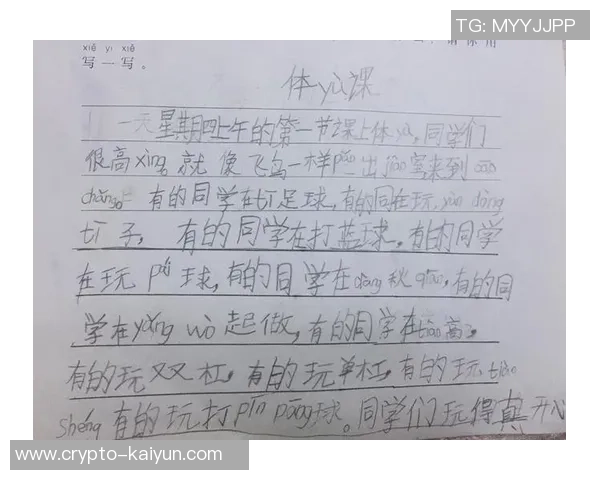 TG: MYYJJPP
xiě yi xiě
写一写。
体yù课
一天星期四上午的第一节课上体yù,同学们
很高xìng就像飞鸟一样pǎo出jiào室来到cāo
chǎng 有的同学在tī足球,有的同在玩
tī子,有的同学在打蓝球,有的同学
在玩 球,有的同学在 秋qiān,有的同
学在yǎng wò起做,有的同学在tiào高,
有的玩双杠,有的玩单杠,有的玩tiào
shéng有的玩打pīn pāng球。同学们玩得真开心
www.crypto-kaiyun.com